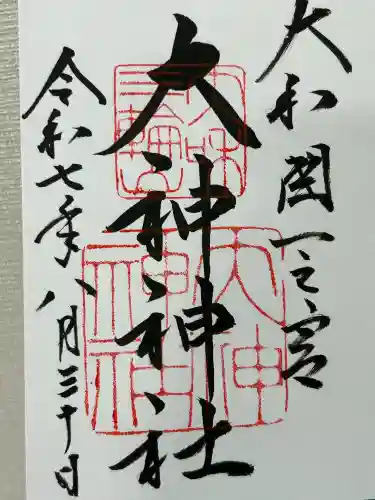 大和国一之宮
大神神社
令和七年八月三十日
三輪明神
大神神社